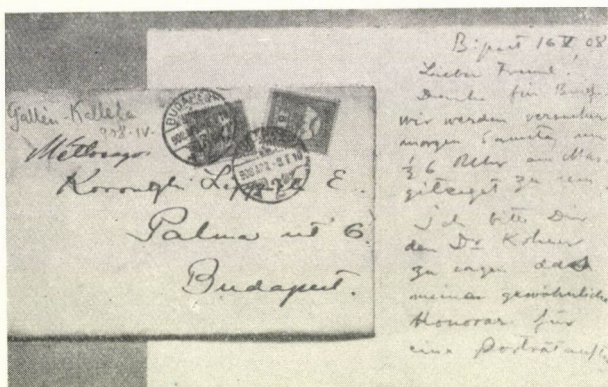 Gallén-Kallela
908-IV-
Koronghi Lippich E.
Palma ut 6.
Budapest.
BUDAPEST
Bpest 16 V 08
Lieber Freund!
Danke für Brief
wir werden versuchen
morgen Samstag um
½ 6 Uhr am Mar
gitsziget zu sein
Ich bitte Dir
den Dr Kohner
zu sagen dass
meinen gewöhnliche
Honorar für
eine Porträtauf